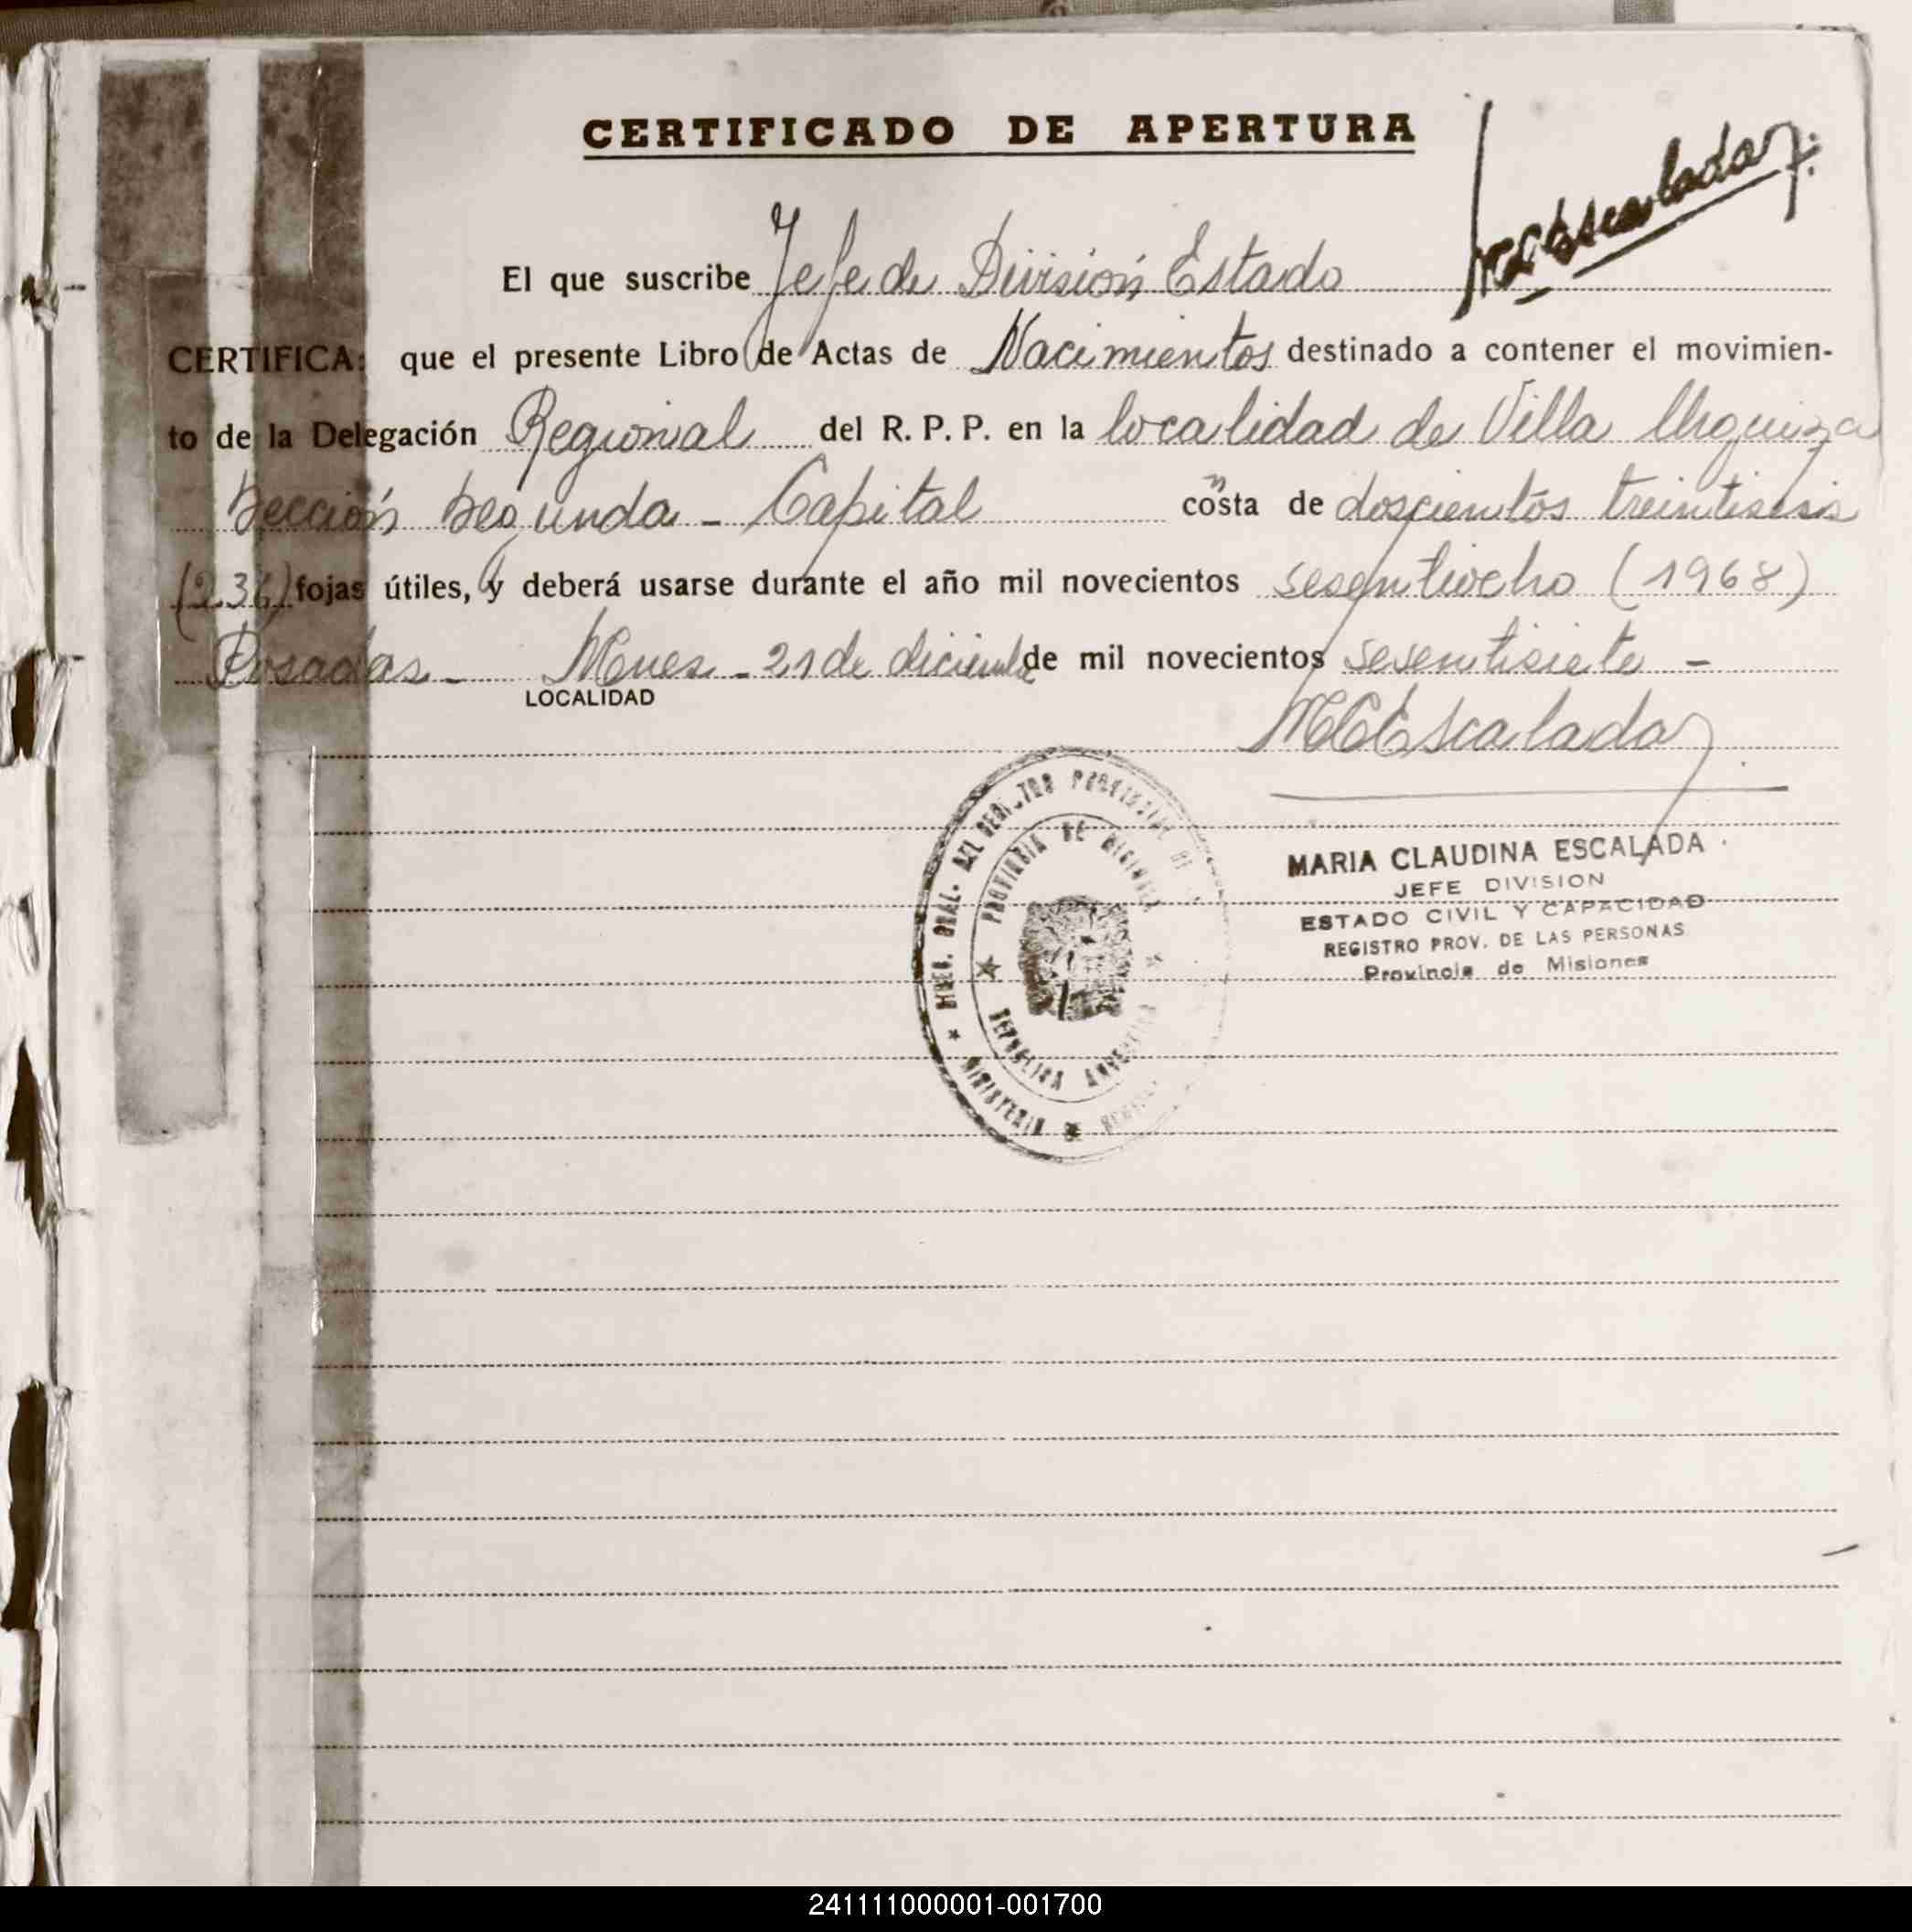 CERTIFICADO DE APERTURA
MCEscalada
El que suscribe Jefe de División Estado
CERTIFICA: que el presente Libro de Actas de Nacimientos destinado a contener el movimien-
to de la Delegación Regional del R. P. P. en la localidad de Villa Urquiza
Sección Segunda - Capital costa de doscientos treintiseis
(236) fojas útiles, y deberá usarse durante el año mil novecientos sesentiocho (1968)
Posadas - Mnes - 21 de diciembre de mil novecientos sesentisiete -
LOCALIDAD
MCEscalada
MARIA CLAUDINA ESCALADA
JEFE DIVISION
ESTADO CIVIL Y CAPACIDAD
REGISTRO PROV. DE LAS PERSONAS
Provincia de Misiones
DIREC. GRAL. DEL REGISTRO PROVINCIAL DE
PROVINCIA DE MISIONES
REPUBLICA ARGENTINA
MINISTERIO
241111000001-001700